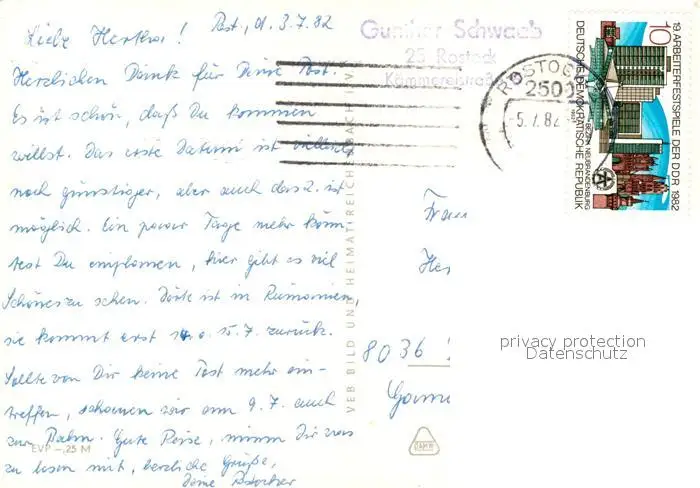 Rost, d. 3.7.82
Liebe Hertha!
Herzlichen Dank für Deine Post.
Es ist schön, daß Du kommen
willst. Das erste Datum ist vielleicht
noch günstiger, aber auch das 2. ist
möglich. Ein paar Tage mehr könn-
test Du einplanen, hier gibt es viel
Schönes zu sehen. Dörte ist in Rumänien,
sie kommt erst 15.7. zurück.
Sollte von Dir keine Post mehr ein-
treffen, schauen wir am 9.7. auch
zur Bahn. Gute Reise, nimm Dir was
zu lesen mit, herzliche Grüße,
Deine
EVP -,25 M
VEB BILD UND HEIMAT REICHENBACH i. V.
Gunther Schwaab
25 Rostock
Kämmereistraße
ROSTOCK
2500
-5.7.82
Frau
8036
19. ARBEITERFESTSPIELE DER DDR 1982
BEZIRK NEUBRANDENBURG
DEUTSCHE DEMOKRATISCHE REPUBLIK
10
privacy protection
Datenschutz